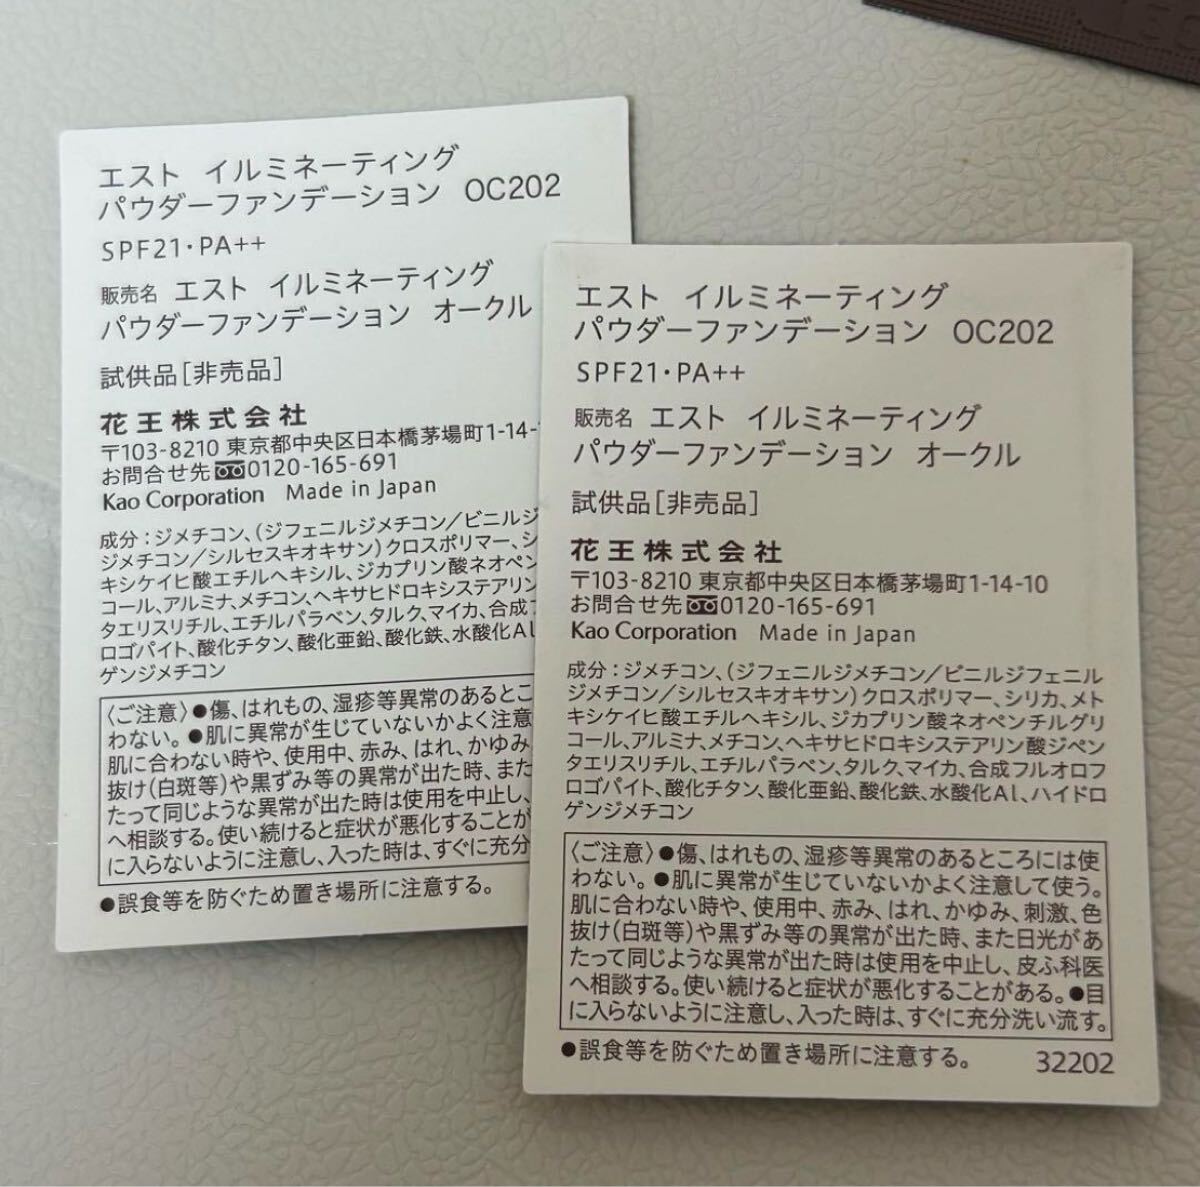 エスト イルミネーティング
パウダーファンデーション OC202
SPF21・PA++
販売名 エスト イルミネーティング
パウダーファンデーション オークル
試供品[非売品]
花王株式会社
〒103-8210 東京都中央区日本橋茅場町1-14-
お問合せ先 0120-165-691
Kao Corporation Made in Japan
成分:ジメチコン、(ジフェニルジメチコン/ビニルジ
ジメチコン/シルセスキオキサン)クロスポリマー、シ
キシケイヒ酸エチルヘキシル、ジカプリン酸ネオペン
コール、アルミナ、メチコン、ヘキサヒドロキシステアリン
タエリスリチル、エチルパラベン、タルク、マイカ、合成フ
ロゴパイト、酸化チタン、酸化亜鉛、酸化鉄、水酸化Al
ゲンジメチコン
〈ご注意〉●傷、はれもの、湿疹等異常のあるとこ
わない。●肌に異常が生じていないかよく注意
肌に合わない時や、使用中、赤み、はれ、かゆみ、
抜け(白斑等)や黒ずみ等の異常が出た時、また
たって同じような異常が出た時は使用を中止し、
へ相談する。使い続けると症状が悪化することが
に入らないように注意し、入った時は、すぐに充分
●誤食等を防ぐため置き場所に注意する。
エスト イルミネーティング
パウダーファンデーション OC202
SPF21・PA++
販売名 エスト イルミネーティング
パウダーファンデーション オークル
試供品[非売品]
花王株式会社
〒103-8210 東京都中央区日本橋茅場町1-14-10
お問合せ先 0120-165-691
Kao Corporation Made in Japan
成分:ジメチコン、(ジフェニルジメチコン/ビニルジフェニル
ジメチコン/シルセスキオキサン)クロスポリマー、シリカ、メト
キシケイヒ酸エチルヘキシル、ジカプリン酸ネオペンチルグリ
コール、アルミナ、メチコン、ヘキサヒドロキシステアリン酸ジペン
タエリスリチル、エチルパラベン、タルク、マイカ、合成フルオロフ
ロゴパイト、酸化チタン、酸化亜鉛、酸化鉄、水酸化Al、ハイドロ
ゲンジメチコン
〈ご注意〉●傷、はれもの、湿疹等異常のあるところには使
わない。●肌に異常が生じていないかよく注意して使う。
肌に合わない時や、使用中、赤み、はれ、かゆみ、刺激、色
抜け(白斑等)や黒ずみ等の異常が出た時、また日光があ
たって同じような異常が出た時は使用を中止し、皮ふ科医
へ相談する。使い続けると症状が悪化することがある。●目
に入らないように注意し、入った時は、すぐに充分洗い流す。
●誤食等を防ぐため置き場所に注意する。 32202